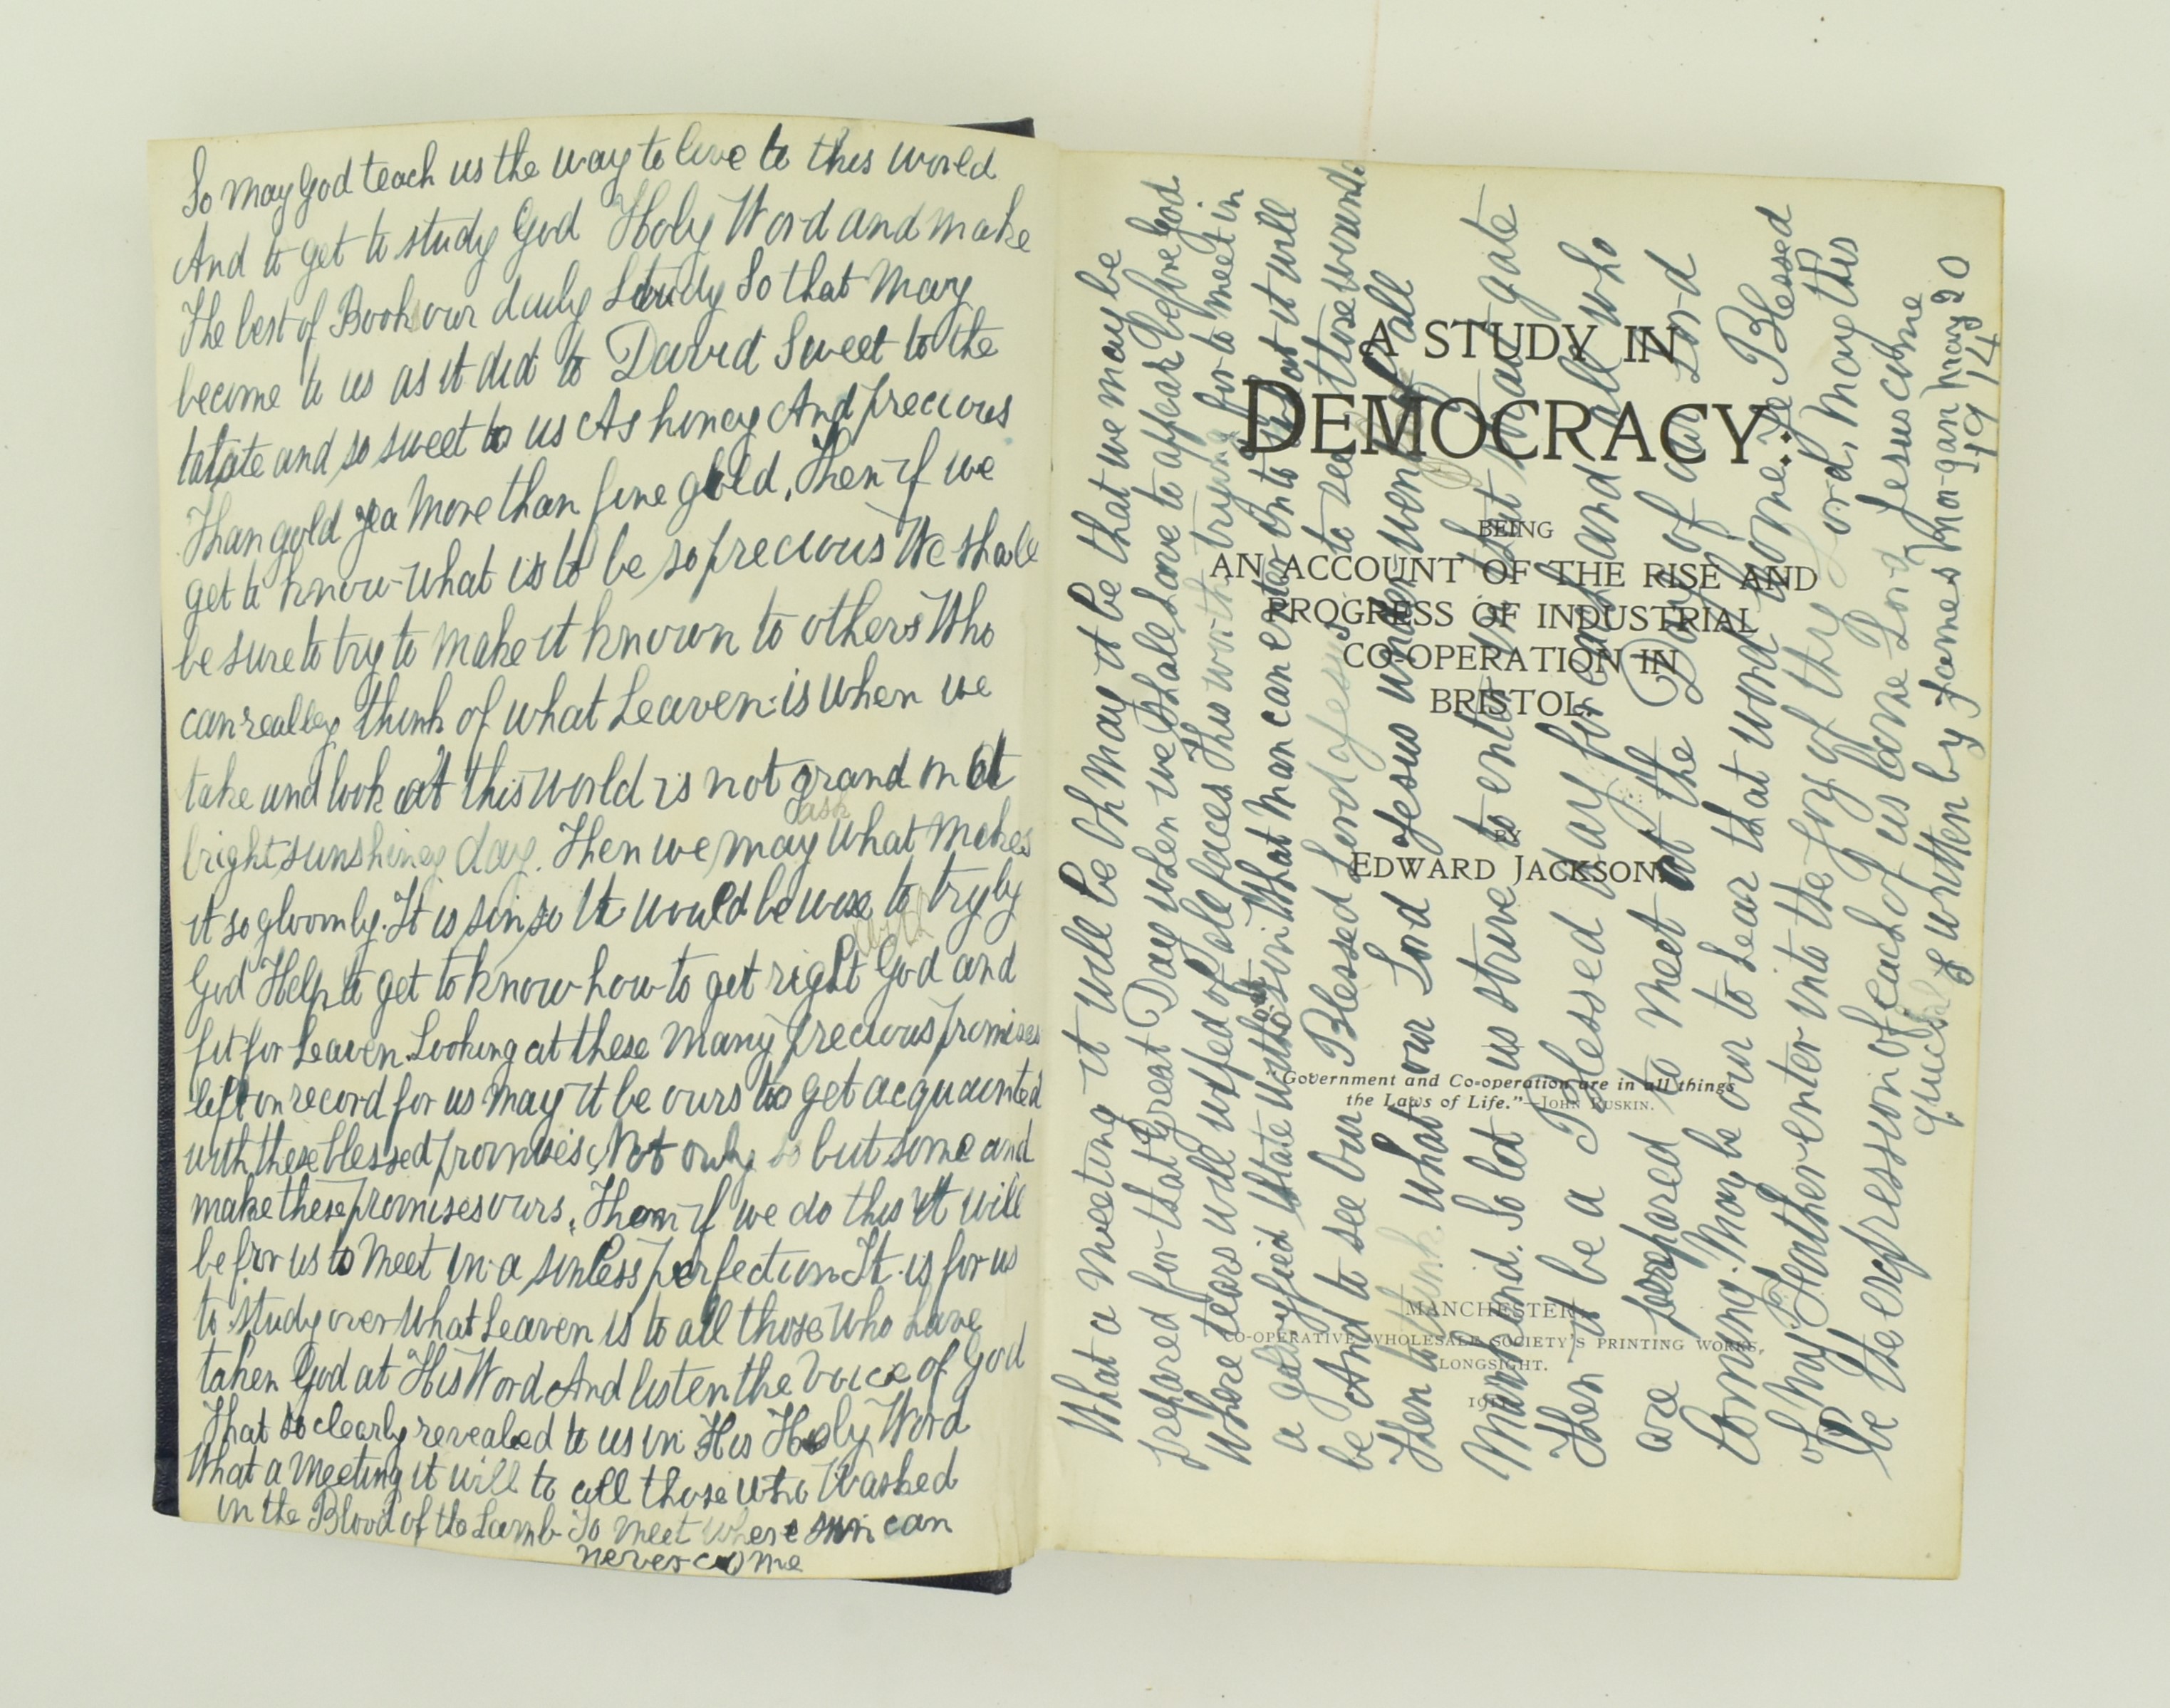 So may God teach us the way to live to this world
And to get to study God Holy Word and make
The best of Book our daily Study So that May
become to us as it did to David Sweet to the
tatate and so sweet to us As honey And precious
Than gold yea More than fine gold, Then if we
get to know what is to be so precious We shall
be sure to try to make it known to others Who
can really think of what heaven is when we
take and look at this world is not grand in it
bright sunshiney day. Then we may ask what makes
it so gloomly. It is sin so it would be wise to try by
God Help to get to know how to get right with God and
fit for heaven. Looking at these many precious promises
left on record for us may it be ours to get acquainted
with these blessed promises, Not only so but some and
make these promises ours. Then if we do this it will
be for us to Meet in a sinless perfection. It is for us
to study over What heaven is to all those Who have
taken God at His Word And listen the voice of God
That so clearly revealed to us in His Holy Word
What a Meeting it will to all those who Washed
in the Blood of the Lamb To meet where sin can
never come
What a Meeting it will be Oh May it be that we may be
prepared for that Great Day when we shall have to appear before God
Where tears will wiffed of fale faces This worth trying for to meet in
a glory fied state without sin What Man can enter into what it will
be And to see our Blessed Lord Jesus to see those wounds
Then to think what our Lord Jesus under went for all
Mankind. So let us strive to enter in that strait gate
Then it be a Blessed day for each and all who
are prepared to meet at the Day of our Lord
Coming. May be our to hear that word come ye Blessed
of my Father enter into the joy of thy Lord, May this
be the expression of each of us come Lord Jesus come
quickly
written by James Morgan May 20
1943
A STUDY IN
DEMOCRACY:
BEING
AN ACCOUNT OF THE RISE AND
PROGRESS OF INDUSTRIAL
CO-OPERATION IN
BRISTOL.
BY
EDWARD JACKSON.
"Government and Co-operation are in all things
the Laws of Life."—JOHN RUSKIN.
MANCHESTER:
CO-OPERATIVE WHOLESALE SOCIETY'S PRINTING WORKS,
LONGSIGHT.